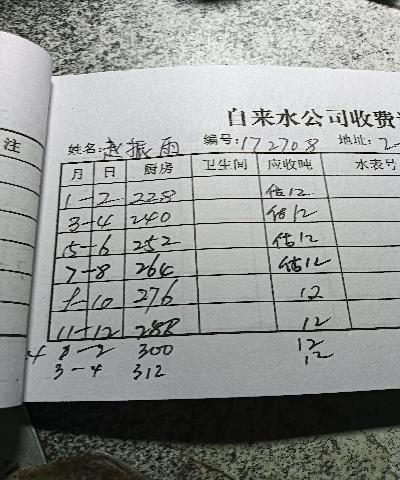 注
自来水公司收费
姓名:赵振雨 编号:172708 地址:2-
月 日 厨房 卫生间 应收吨 水表号
1-2 228 估12
3-4 240 估12
5-6 252 估12
7-8 264 估12
9-10 276 12
11-12 288 12
1-2 300 12
3-4 312 12